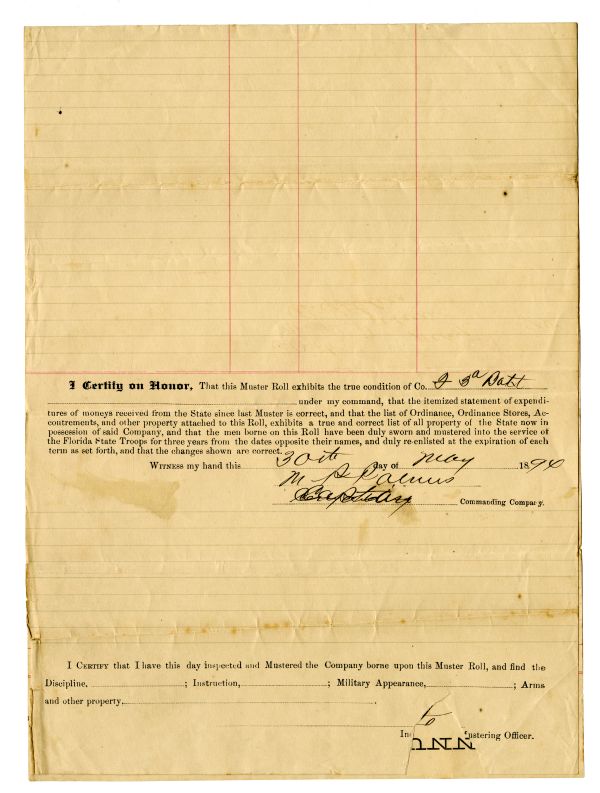 I Certify on Honor, That this Muster Roll exhibits the true condition of Co. I 3d Batt
under my command, that the itemized statement of expendi-
tures of moneys received from the State since last Muster is correct, and that the list of Ordinance, Ordinance Stores, Ac-
contrements, and other property attached to this Roll, exhibits a true and correct list of all property of the State now in
possession of said Company, and that the men borne on this Roll have been duly sworn and mustered into the service of
the Florida State Troops for three years from the dates opposite their names, and duly re-enlisted at the expiration of each
term as set forth, and that the changes shown are correct.
WITNESS my hand this 30th day of May 1894
M
Commanding Company.
I CERTIFY that I have this day inspected and Mustered the Company borne upon this Muster Roll, and find the
Discipline, ; Instruction, ; Military Appearance, ; Arms
and other property, .
ustering Officer.